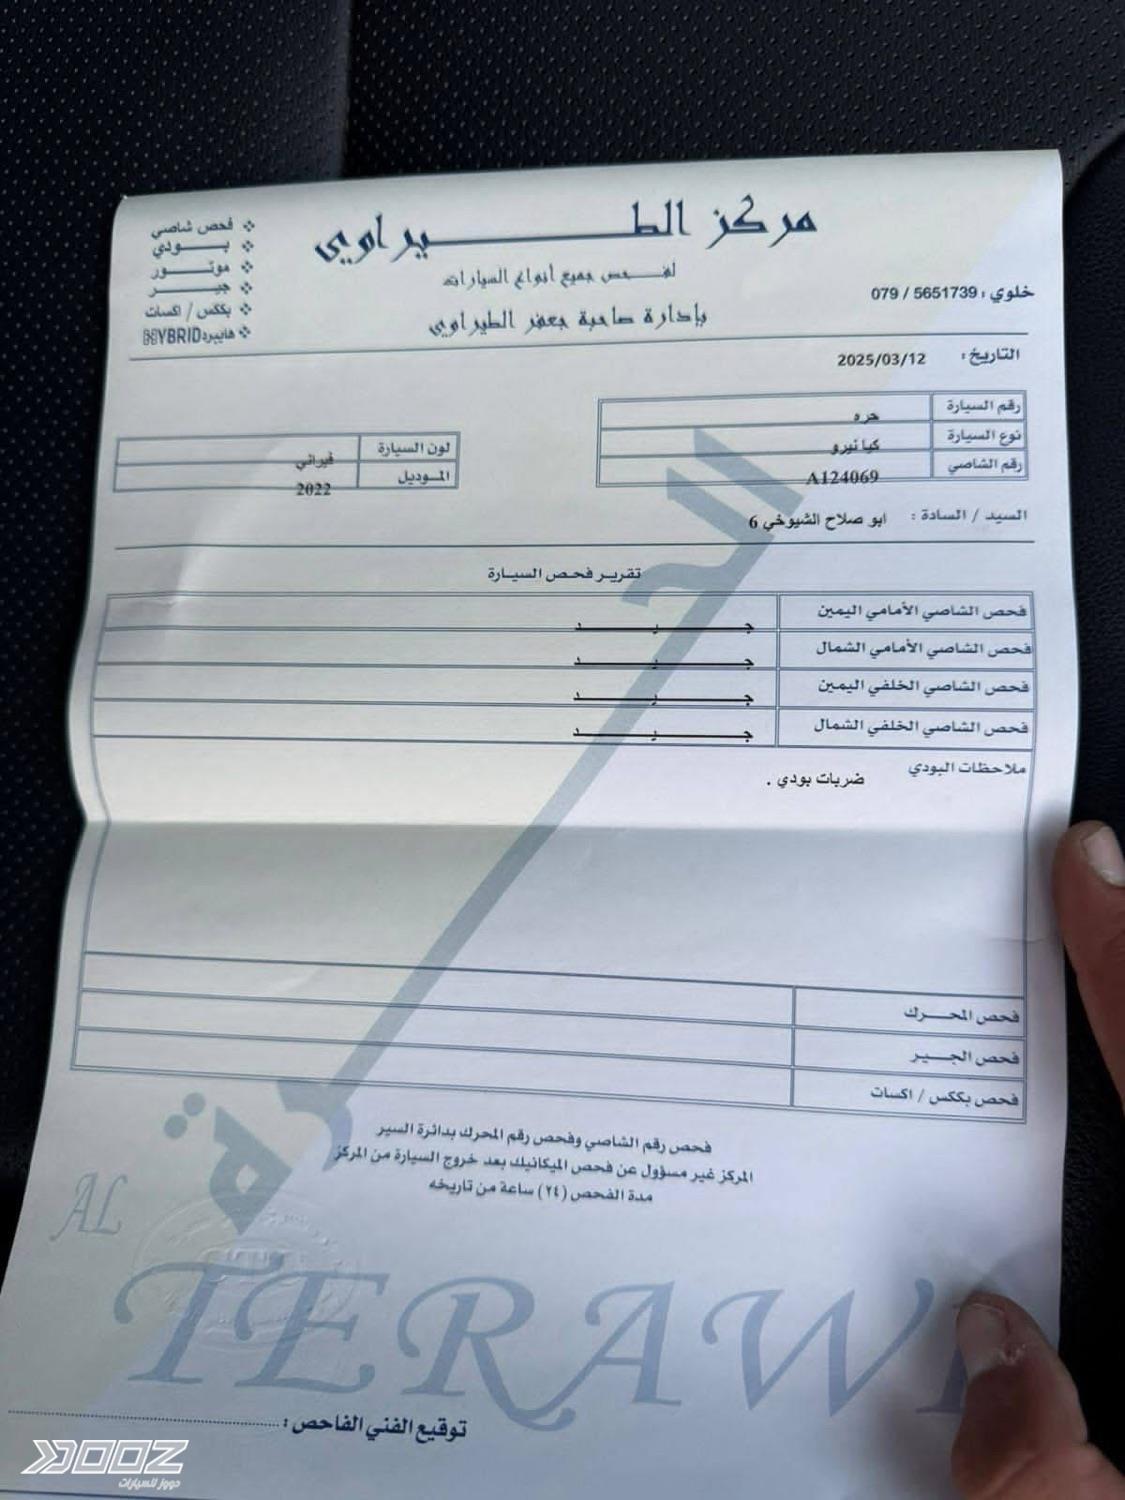 مركز الطيراوي
لفحص جميع أنواع السيارات
بإدارة صاحبة جعفر الطيراوي
فحص شاصي
بودي
موتور
جير
بككس / اكسات
هايبرد HYBRID
خلوي : 079 / 5651739
التاريخ : 2025/03/12
رقم السيارة حره
نوع السيارة كيا نيرو
رقم الشاصي A124069
لون السيارة فيراني
الموديل 2022
السيد / السادة : ابو صلاح الشيوخي 6
تقرير فحص السيارة
فحص الشاصي الأمامي اليمين جيد
فحص الشاصي الأمامي الشمال جيد
فحص الشاصي الخلفي اليمين جيد
فحص الشاصي الخلفي الشمال جيد
ملاحظات البودي ضربات بودي .
فحص المحرك
فحص الجير
فحص بككس / اكسات
فحص رقم الشاصي وفحص رقم المحرك بدائرة السير
المركز غير مسؤول عن فحص الميكانيك بعد خروج السيارة من المركز
مدة الفحص (٢٤) ساعة من تاريخه
الحرة
AL
TERAWI
توقيع الفني الفاحص :
DOOZ
دووز للسيارات